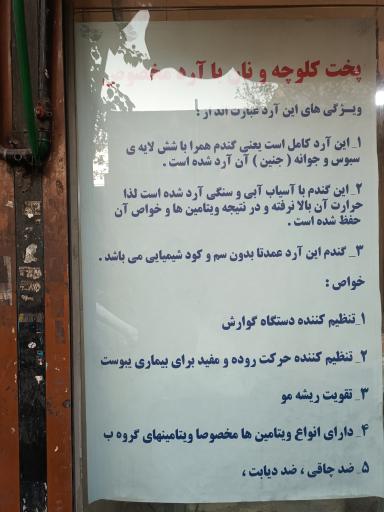 پخت کلوچه و نان با آرد مخصوص
ویـژگی های این آرد عبارت اند از :
۱_ این آرد کامل است یعنی گندم همرا با شش لایه ی
سبوس و جوانه ( جنین ) آن آرد شده است .
۲_ این گندم با آسیاب آبی و سنگی آرد شده است لذا
حرارت آن بالا نرفته و در نتیجه ویتامین ها و خواص آن
حفظ شده است .
۳_ گندم این آرد عمدتا بدون سم و کود شیمیایی می باشد .
خواص :
۱_تنظیم کننده دستگاه گوارش
۲_ تنظیم کننده حرکت روده و مفید برای بیماری یبوست
۳_ تقویت ریشه مو
۴_ دارای انواع ویتامین ها مخصوصا ویتامینهای گروه ب
۵_ ضد چاقی ، ضد دیابت ،